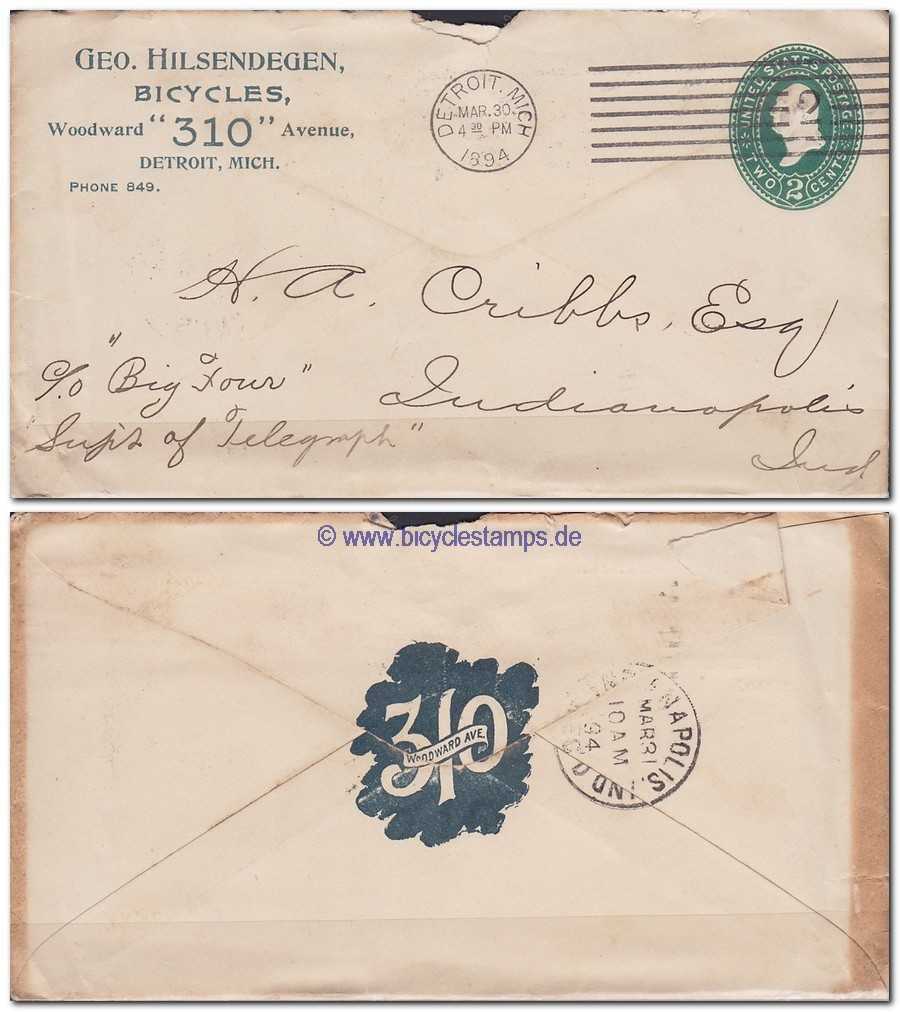 GEO. HILSENDEGEN,
BICYCLES,
Woodward "310" Avenue,
DETROIT, MICH.
PHONE 849.
DETROIT, MICH
MAR. 30.
4 30 PM
1894
2
UNITED STATES POSTAGE
TWO 2 CENTS
H. A. Cribbs, Esq
c/o "Big Four"
Indianapolis
"Supt of Telegraph"
Ind
© www.bicyclestamps.de
310
WOODWARD AVE.
NAPOLIS. IND
MAR 31
10 AM
94